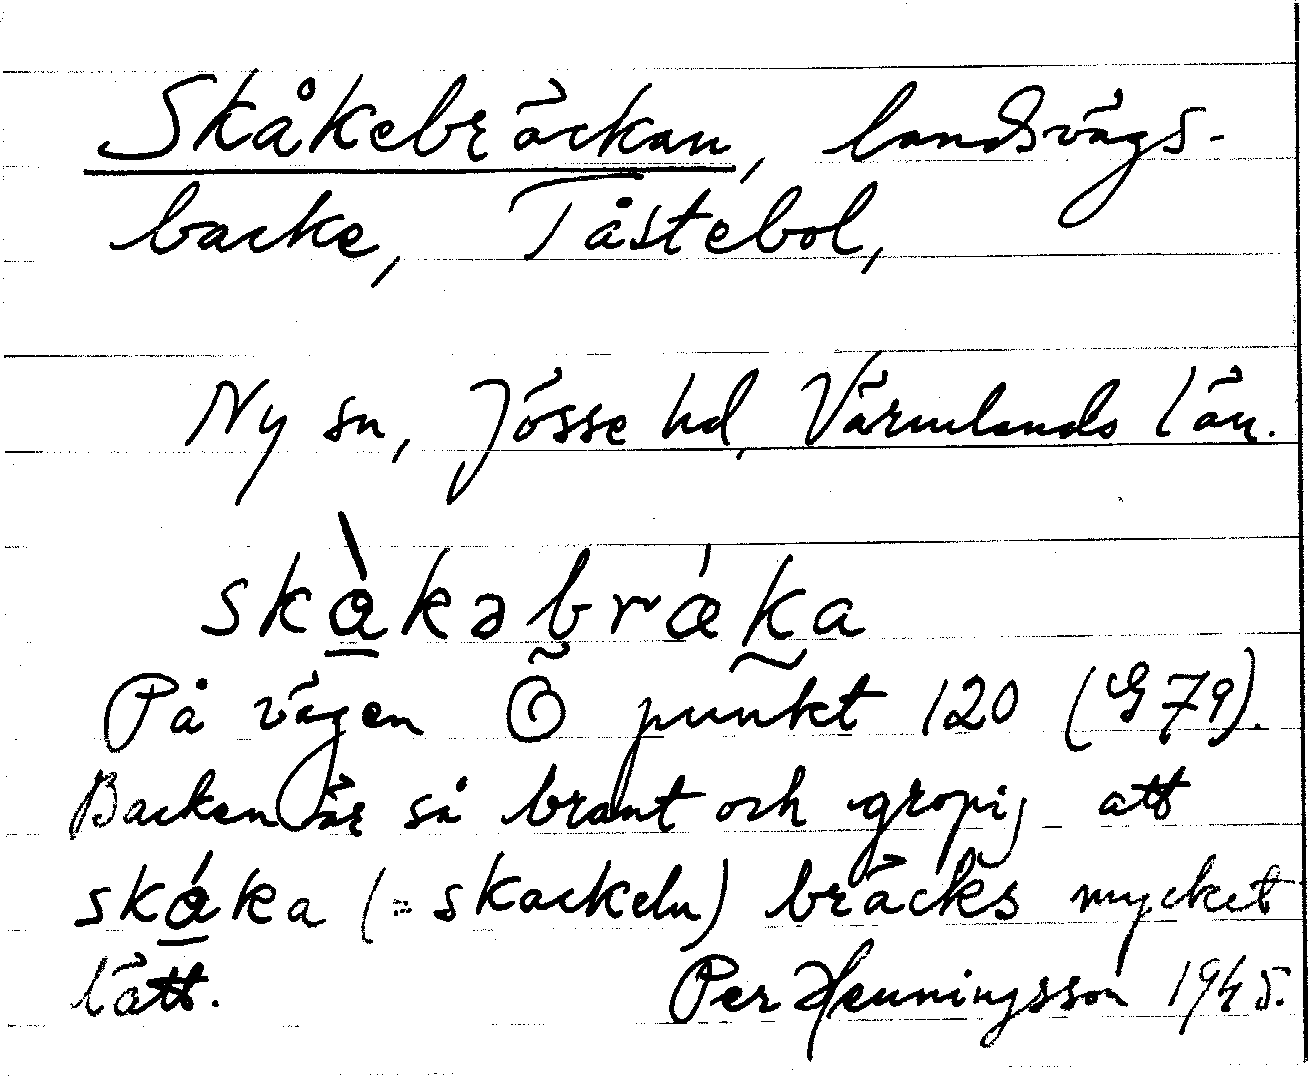 Skåkebräckan, landsvägs-
backe, Tåstebol,
Ny sn, Jösse hd, Värmlands län.
skὰ̱kəbrǽka
På vägen Ö punkt 120 (G 79).
Backen är så brant och gropig att
skά̱ka (= skackeln) bräcks mycket
lätt. Per Henningsson 1945.